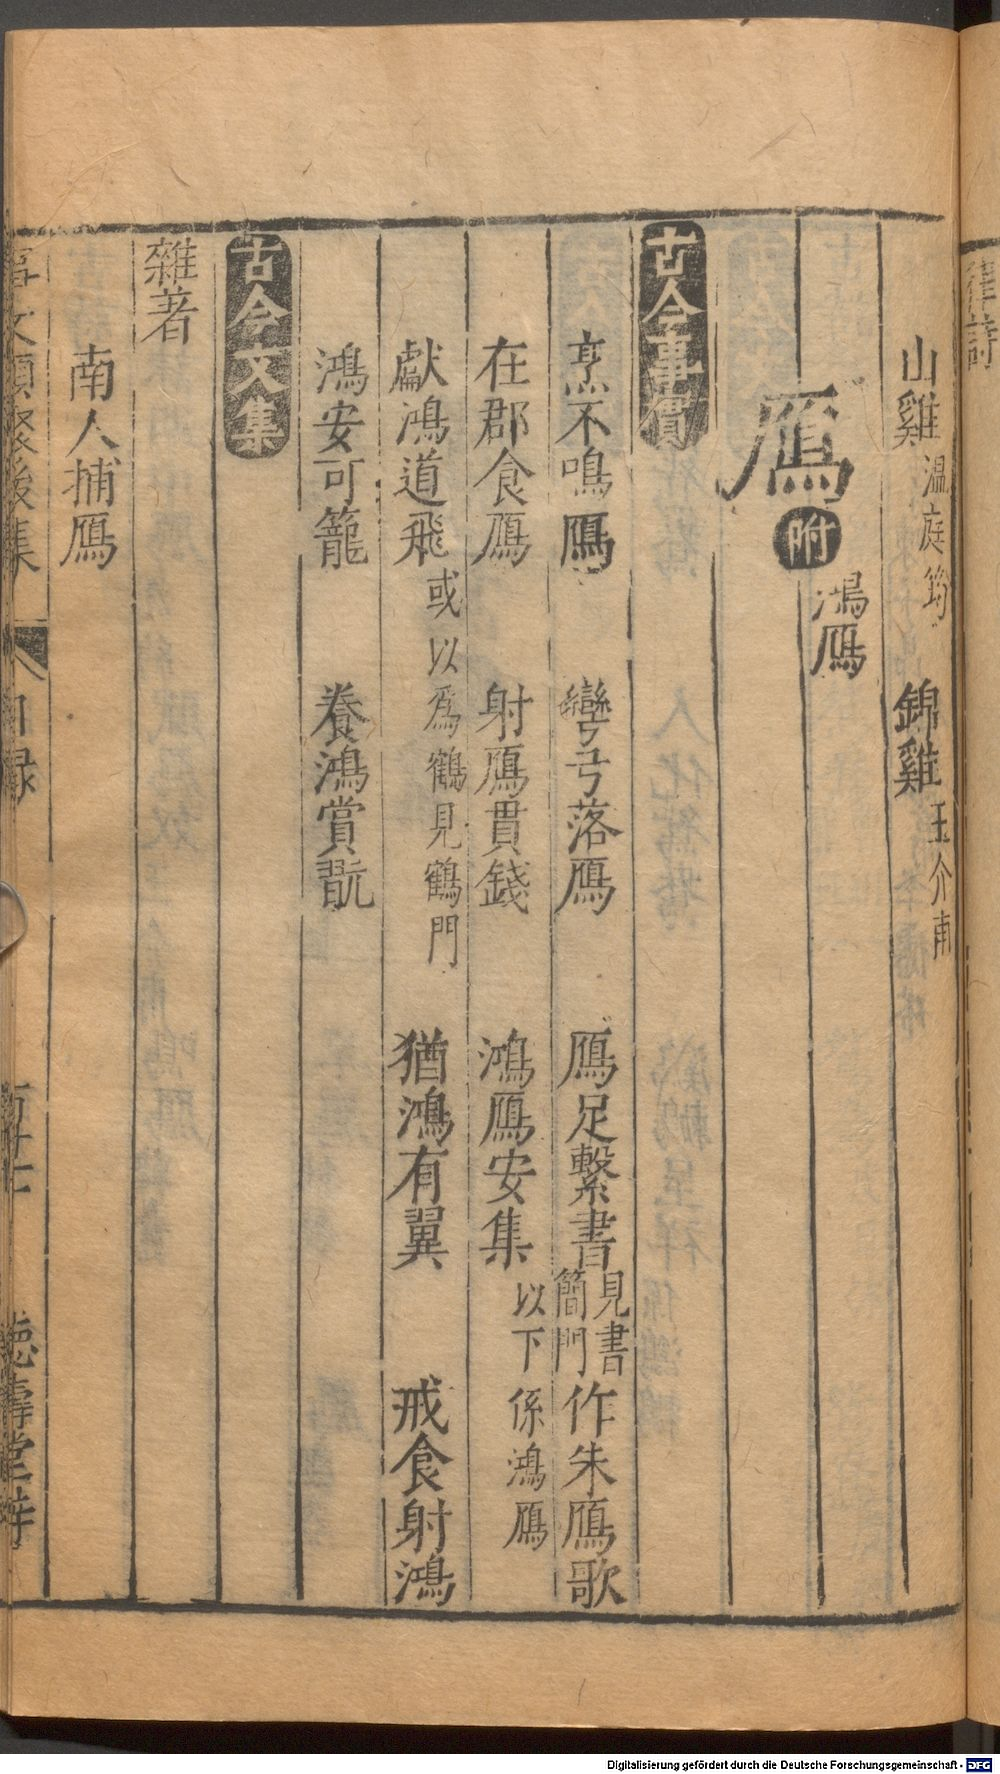 山雞 溫庭筠 錦雞 王介甫
鴈 附 鴻鴈
古今事實
烹不鳴鴈 彎弓落鴈 鴈足繫書 見書簡門 作朱鴈歌
在郡食鴈 射鴈貫錢 鴻鴈安集 以下係鴻鴈
獻鴻道飛 或以爲鶴見鶴門 猶鴻有翼 戒食射鴻
鴻安可籠 養鴻賞翫
古今文集
雜著
南人捕鴈
事文類聚後集 目録 德壽堂梓
Digitalisierung gefördert durch die Deutsche Forschungsgemeinschaft - DFG